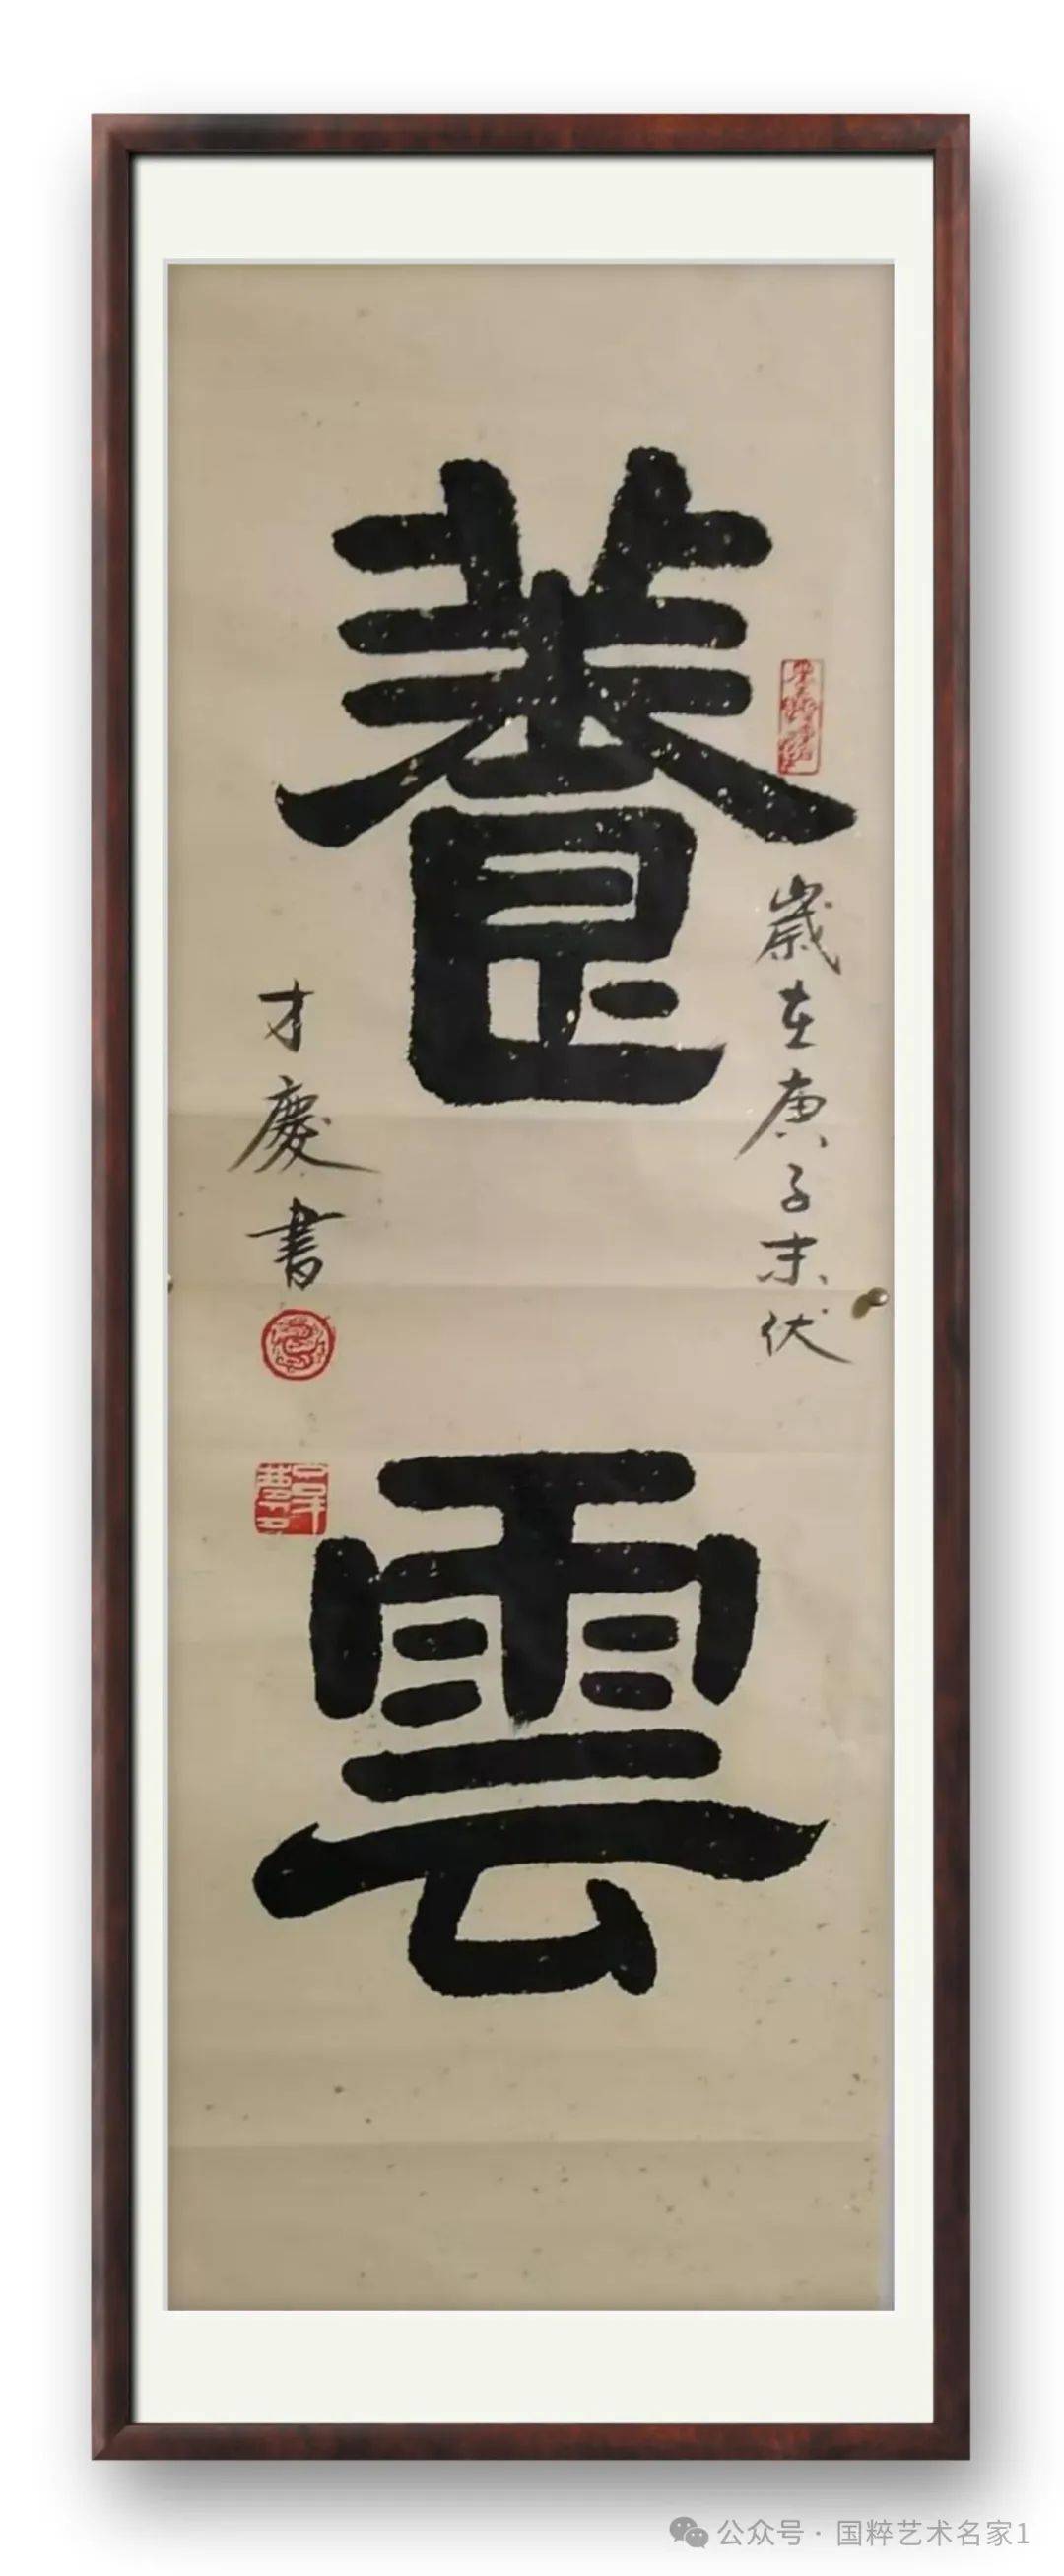 養雲
歲在庚子末伏
才慶書
公众号·国粹艺术名家1